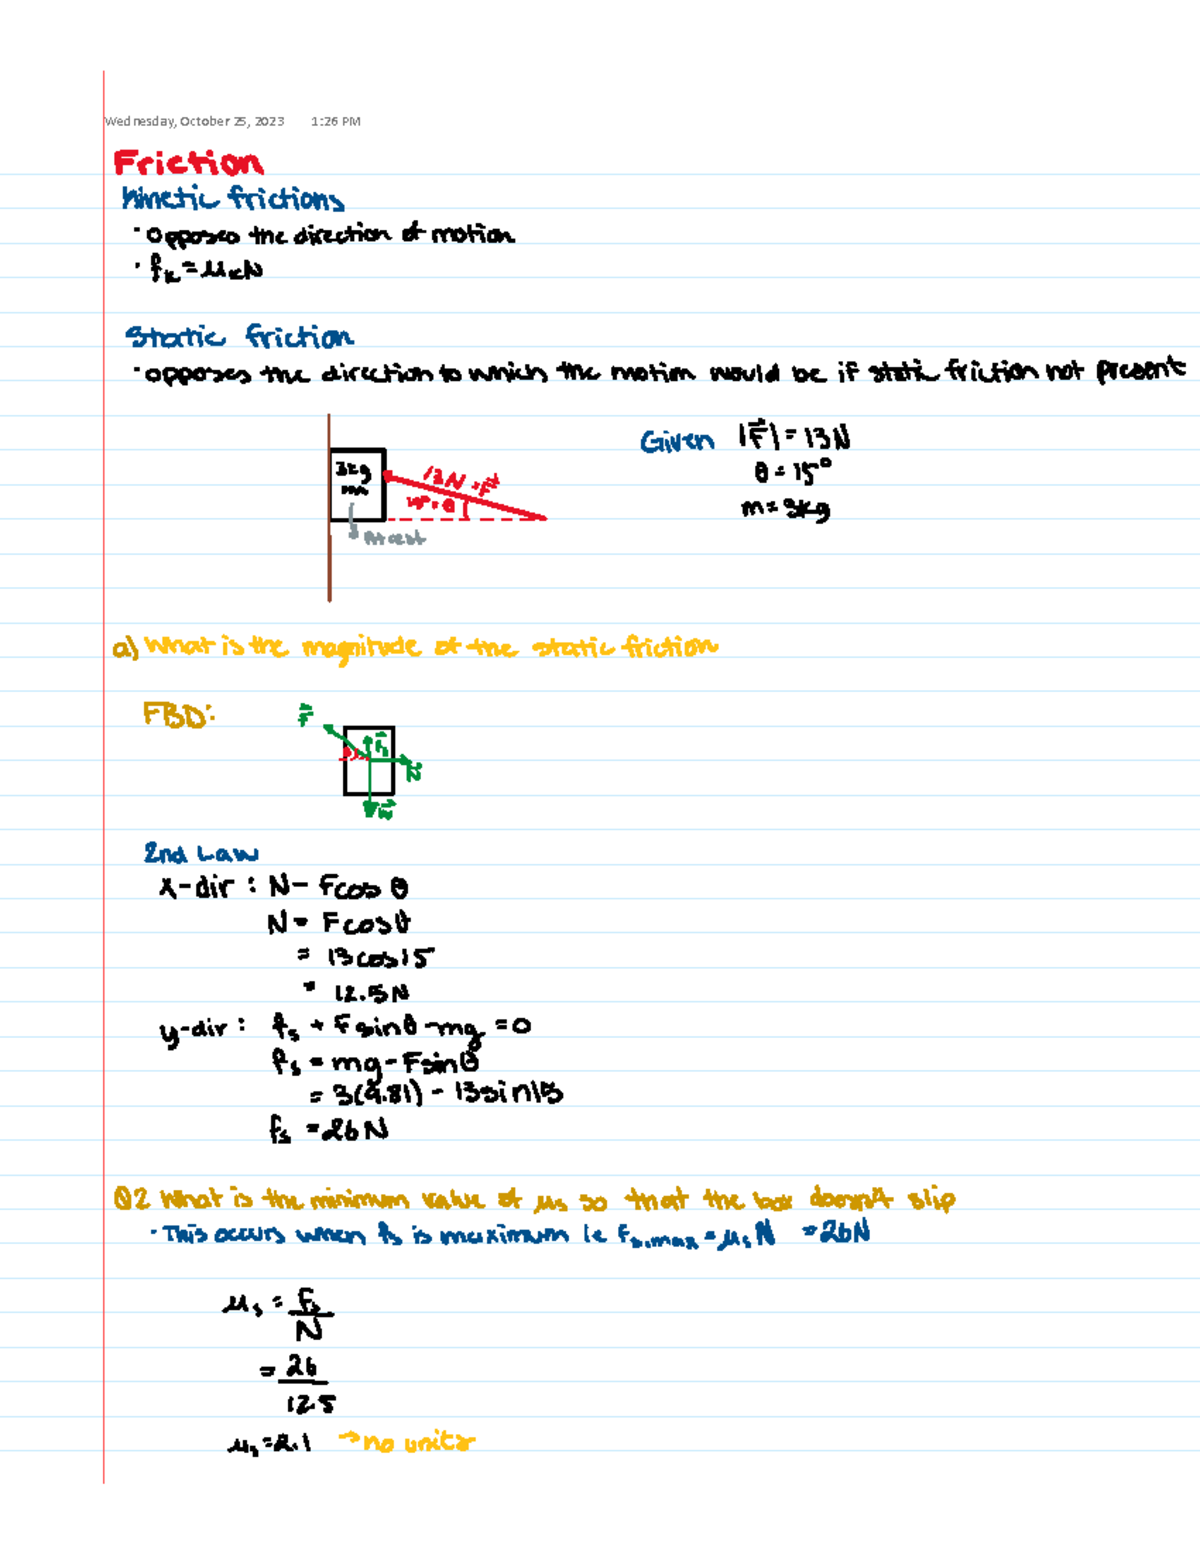 Wednesday, October 25, 2023 1:26 PM
Friction
Kinetic frictions
· Opposes the direction of motion
· fk = μkN
Static friction
· opposes the direction to which the motion would be if static friction not present
Given |F⃗| = 13N
θ = 15°
m = 3kg
3kg
m
13N = F⃗
15° = θ
At rest
a) What is the magnitude of the static friction
FBD:
F⃗
f⃗s
N⃗
W⃗
2nd Law
x-dir : N - Fcos θ
N = Fcosθ
= 13cos15
= 12.5N
y-dir : fs + Fsinθ - mg = 0
fs = mg - Fsinθ
= 3(9.81) - 13sin15
fs = 26N
Q2 What is the minimum value of μs so that the box doesn't slip
· This occurs when fs is maximum ie Fs,max = μsN = 26N
μs = fs
N
= 26
12.5
μs = 2.1 → no units